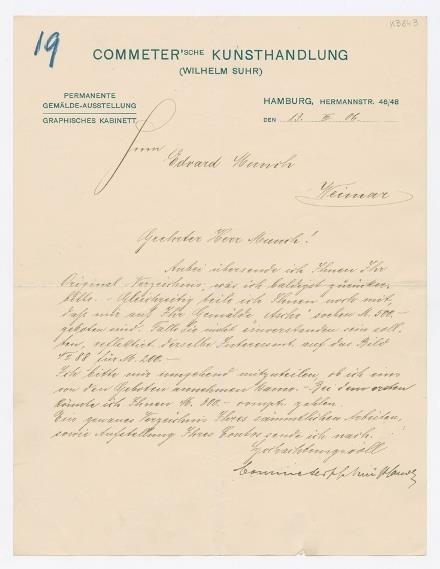 K3643
19
COMMETER'SCHE KUNSTHANDLUNG
(WILHELM SUHR)
PERMANENTE
GEMÄLDE-AUSSTELLUNG
GRAPHISCHES KABINETT
HAMBURG, HERMANNSTR. 46/48
DEN 13. 06.
Herrn
Edvard Munch
Weimar
Geehrter Herr Munch!
Anbei übersende ich Ihnen Ihr
Original-Verzeichnis, was ich baldigst
bitte. - Gleichzeitig teile ich Ihnen noch mit,
daß mir auf Ihr Gemälde soeben M. 500.-
geboten sind. Falls Sie nicht einverstanden sein soll-
ten, reflektiert derselbe Interessent auf das Bild
88 für M. 200.-
Ich bitte mir umgehend mitzuteilen, ob ich eins
von den Geboten annehmen kann. - Zu dem ersten
könnte ich Ihnen M. zahlen.
Ein genaues Verzeichnis Ihrer sämmtlichen Arbeiten,
sowie Aufstellung Ihres Contos sende ich nach.
Hochachtungsvoll